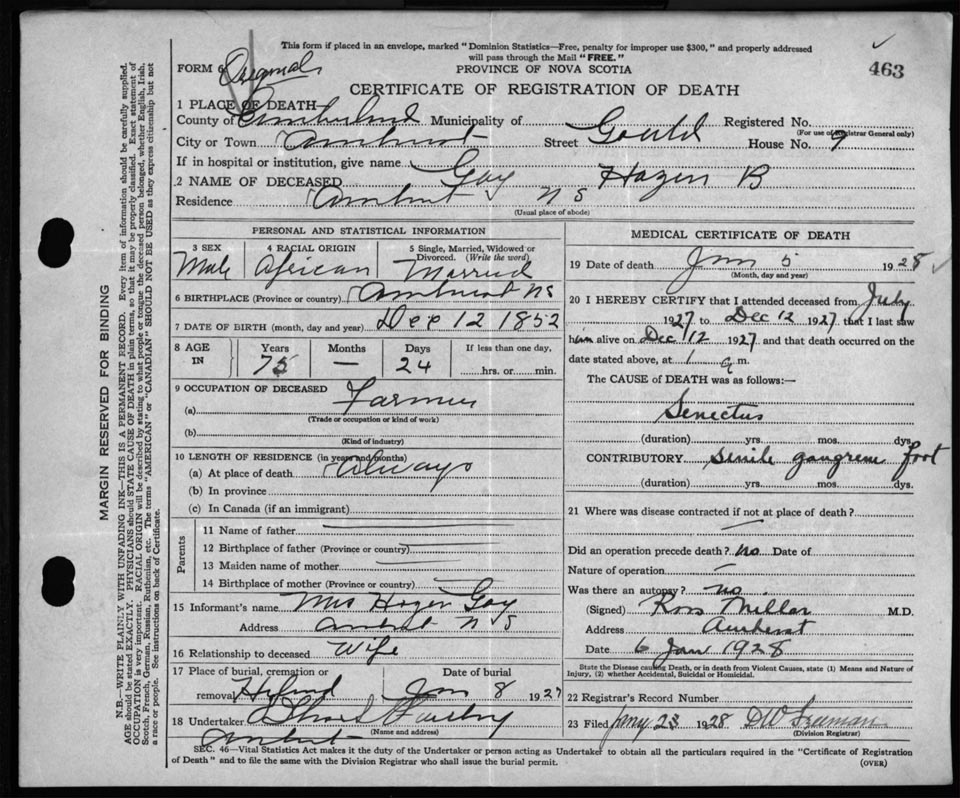 This form if placed in an envelope, marked "Dominion Statistics—Free, penalty for improper use $300," and properly addressed
will pass through the Mail "FREE."
FORM 6 Original
PROVINCE OF NOVA SCOTIA
463
CERTIFICATE OF REGISTRATION OF DEATH
1 PLACE OF DEATH—
County of Cumberland Municipality of Registered No.
(For use of Registrar General only)
City or Town Amherst Street Gould House No. 9
If in hospital or institution, give name
2 NAME OF DECEASED Gay Hazen B
Residence Amherst N S
(Usual place of abode)
PERSONAL AND STATISTICAL INFORMATION
3 SEX 4 RACIAL ORIGIN 5 Single, Married, Widowed or
Divorced. (Write the word)
Male African Married
6 BIRTHPLACE (Province or country) Amherst NS
7 DATE OF BIRTH (month, day and year) Dec 12 1852
8 AGE IN Years Months Days If less than one day,
75 — 24 hrs. or min.
9 OCCUPATION OF DECEASED
(a) Farmer
(Trade or occupation or kind of work)
(b)
(Kind of industry)
10 LENGTH OF RESIDENCE (in years and months)
(a) At place of death Always
(b) In province
(c) In Canada (if an immigrant)
Parents
11 Name of father
12 Birthplace of father (Province or country)
13 Maiden name of mother
14 Birthplace of mother (Province or country)
15 Informant's name Mrs Hazen Gay
Address Amherst N S
16 Relationship to deceased Wife
17 Place of burial, cremation or Date of burial
removal Jan 8 1927
18 Undertaker
(Name and address)
Amherst
MEDICAL CERTIFICATE OF DEATH
19 Date of death Jan 5 1928
(Month, day and year)
20 I HEREBY CERTIFY that I attended deceased from July
1927 to Dec 12 1927 that I last saw
him alive on Dec 12 1927 and that death occurred on the
date stated above, at 1 a m.
The CAUSE of DEATH was as follows:—
Senectus
(duration) yrs. mos. dys.
CONTRIBUTORY Senile gangrene foot
(duration) yrs. mos. dys.
21 Where was disease contracted if not at place of death?
Did an operation precede death? no Date of
Nature of operation
Was there an autopsy? no.
(Signed) Ross Millar M.D.
Address Amherst
Date 6 Jan 1928
State the Disease causing Death, or in death from Violent Causes, state (1) Means and Nature of
Injury, (2) whether Accidental, Suicidal or Homicidal.
22 Registrar's Record Number
23 Filed Jany 23 1928 DW Freeman
(Division Registrar)
SEC. 46—Vital Statistics Act makes it the duty of the Undertaker or person acting as Undertaker to obtain all the particulars required in the "Certificate of Registration
of Death" and to file the same with the Division Registrar who shall issue the burial permit.
(OVER)
MARGIN RESERVED FOR BINDING
N.B.—WRITE PLAINLY WITH UNFADING INK—THIS IS A PERMANENT RECORD. Every item of information should be carefully supplied.
AGE should be stated EXACTLY. PHYSICIANS should STATE CAUSE OF DEATH in plain terms, so that it may be properly classified. Exact statement of
OCCUPATION is very important. RACIAL ORIGIN will be described by stating to what people or tongue the deceased person belonged, whether English, Irish,
Scotch, French, German, Russian, Ruthenian, etc. The terms "AMERICAN" or "CANADIAN" SHOULD NOT BE USED as they express citizenship but not
a race or people. See instructions on back of Certificate.